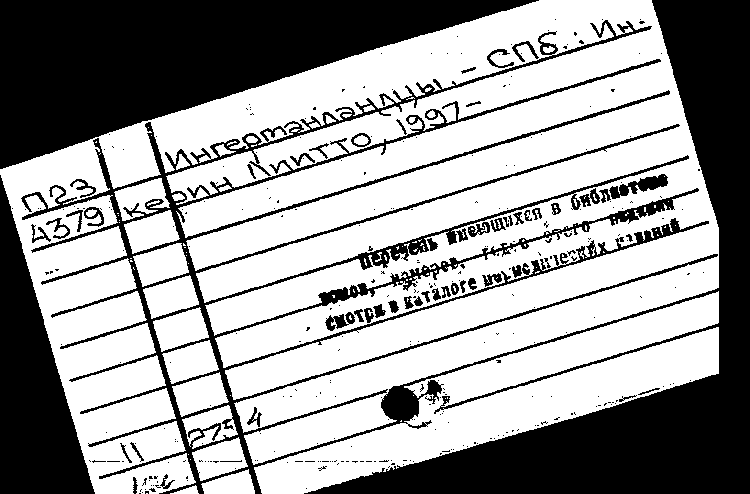 Ингерманландцы. – СПб.: Ин-
П23 керин Лиитто, 1997–
4379
Перечень имеющихся в библиотеке
томов, номеров, годов этого издания
смотри в каталоге периодических изданий
11 2754